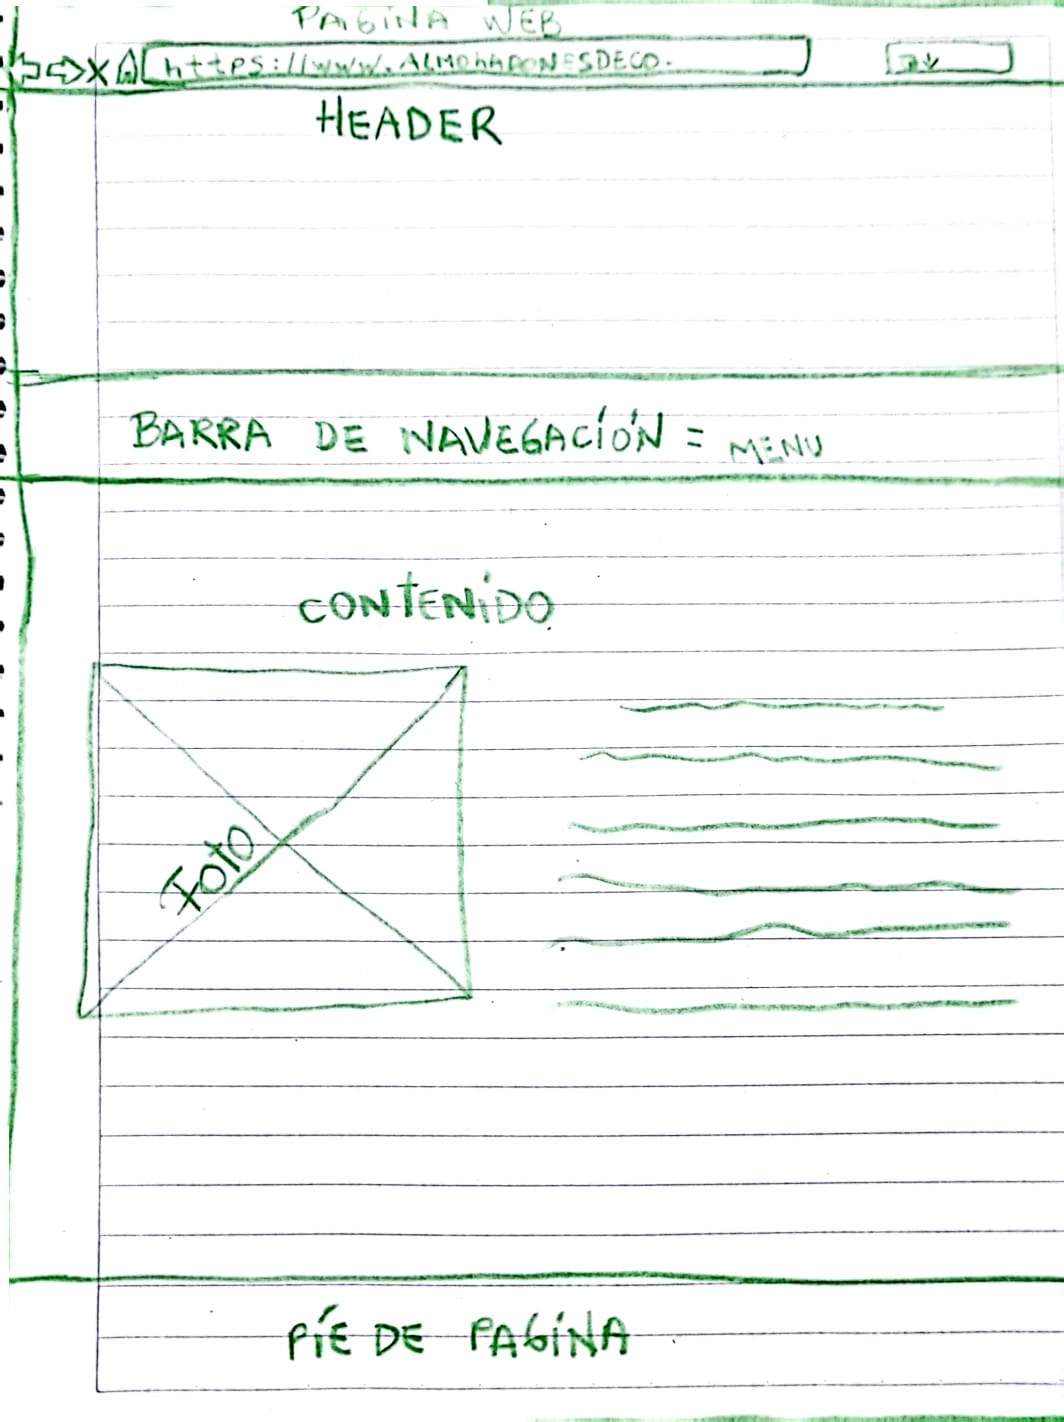 PAGINA WEB
https://www.ALMOHADONESDECO.
HEADER
BARRA DE NAVEGACIÓN = MENU
CONTENIDO
FOTO
PÍE DE PAGINA